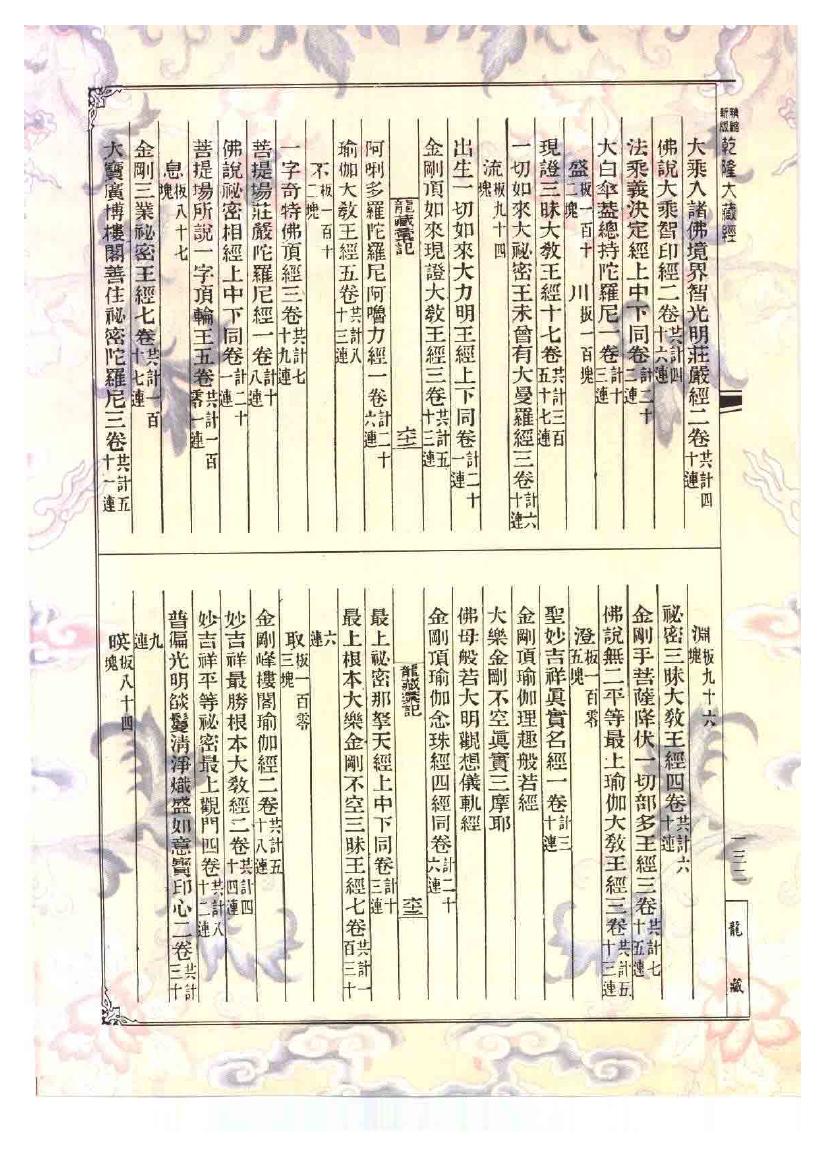 新版精縮 乾隆大藏經
大乘入諸佛境界智光明莊嚴經二卷共計四十連
佛說大乘智印經二卷共計四十六連
法乘義決定經上中下同卷計三十三連
大白傘蓋總持陀羅尼一卷計十三連
盛板一百十二塊 川板一百塊
現證三昧大敎王經十七卷共計三百五十七連
一切如來大祕密王未曾有大曼羅經三卷計六十連
流板九十四塊
出生一切如來大力明王經上下同卷計二十一連
金剛頂如來現證大敎王經三卷共計五十三連
龍藏彙記 六十一
阿唎多羅陀羅尼阿嚕力經一卷計二十六連
瑜伽大敎王經五卷共計八十三連
不板一百十二塊
一字奇特佛頂經三卷共計七十九連
菩提場莊嚴陀羅尼經一卷計十八連
佛說祕密相經上中下同卷計二十一連
菩提場所說一字頂輪王五卷共計一百零一連
息板八十七塊
金剛三業祕密王經七卷共計一百十七連
大寶廣博樓閣善住祕密陀羅尼三卷共計五十一連
淵板九十六塊
祕密三昧大敎王經四卷共計六十連
金剛手菩薩降伏一切部多王經三卷共計七十五連
佛說無二平等最上瑜伽大敎王經三卷共計五十三連
澄板一百零五塊
聖妙吉祥眞實名經一卷計三十連
金剛頂瑜伽理趣般若經
大樂金剛不空眞實三摩耶
佛母般若大明觀想儀軌經
金剛頂瑜伽念珠經四經同卷計二十六連
龍藏彙記 六十二
最上祕密那拏天經上中下同卷計十三連
最上根本大樂金剛不空三昧王經七卷共計一百三十
六連
取板一百零三塊
金剛峰樓閣瑜伽經二卷共計五十八連
妙吉祥最勝根本大敎經二卷共計四十四連
妙吉祥平等祕密最上觀門四卷共計八十二連
普徧光明燄鬘清淨熾盛如意寶印心二卷共計三十
九連
暎板八十四塊
一三二
龍藏